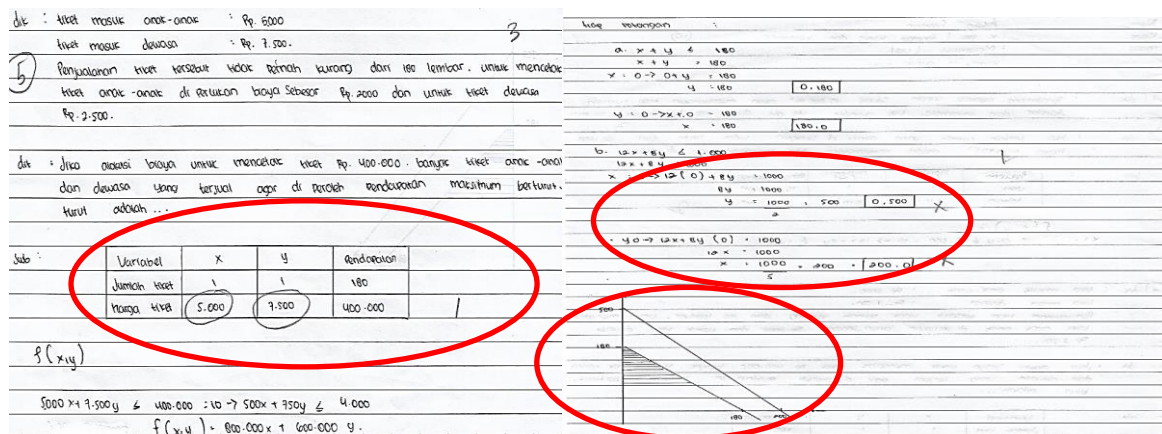 dit : tiket masuk anak-anak : Rp. 5000
3
tiket masuk dewasa : Rp. 7.500.
5
Penjualanan tiket tersebut tidak pernah kurang dari 180 lembar. untuk mencetak
tiket anak-anak di perlukan biaya sebesar Rp. 2000 dan untuk tiket dewasa
Rp. 2.500.
dit : Jika alokasi biaya untuk mencetak tiket Rp. 400.000. banyak tiket anak-anak
dan dewasa yang terjual agar di peroleh pendapatan maksimum berturut-
turut adalah ...
Jwb :
Variabel x y Pendapatan
Jumlah tiket 1 1 180
Harga tiket 5.000 7.500 400.000
1
f(x,y)
5000 x + 7.500 y ≤ 400.000 : 10 -> 500x + 750y ≤ 4.000
f(x,y) = 800.000 x + 600.000 y.
:
a. x + y ≤ 180
x + y = 180
x = 0 -> 0 + y = 180
y = 180 0,180
y = 0 -> x + 0 = 180
x = 180 180,0
b. 12x + 8y ≤ 1.000
12x + 8y
x -> 12(0) + 8y = 1000
8y = 1000
y = 1000 = 500 0,500 x
2
y 0 -> 12x + 8y (0) = 1000
12 x = 1000
x = 1000 = 200 = 200,0
5
500
180
180 200